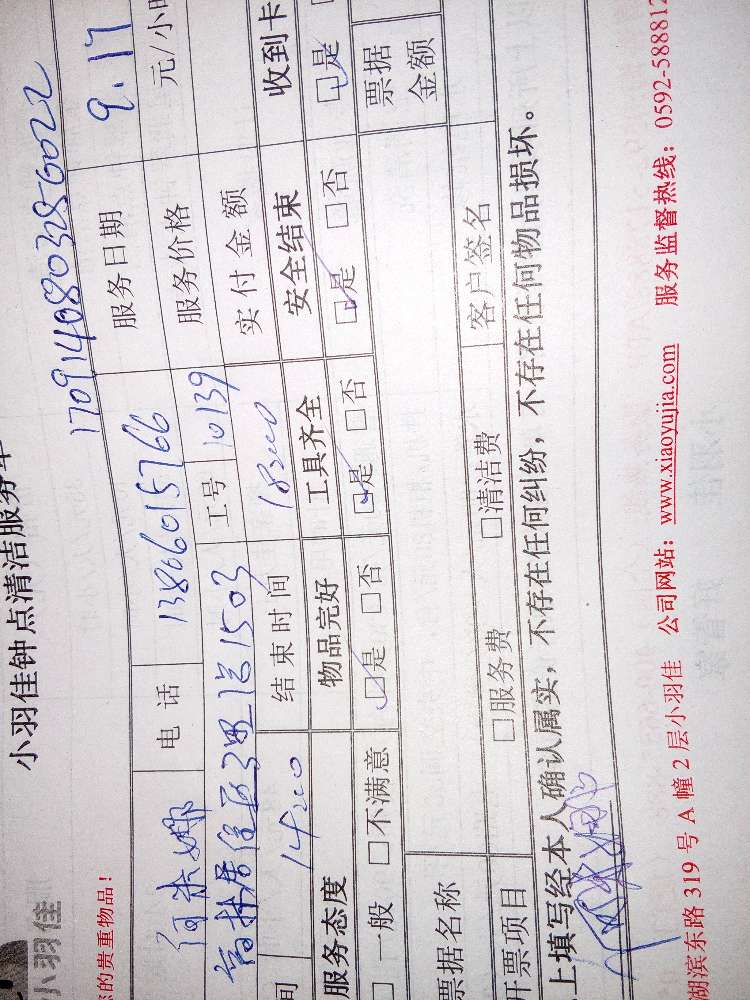 小羽佳
小羽佳钟点清洁服务单
您的贵重物品!
17091408032856022
电话 13806015766 服务日期 9.17
高林居住区 1503 工号 10139 服务价格 元/小时
间 14:00 结束时间 18:00 实付金额
服务态度 物品完好 工具齐全 安全结束 收到卡
□一般 □不满意 □是 □否 □是 □否 □是 □否 □是
票据名称 票据金额
开票项目 □服务费 □清洁费 客户签名
上填写经本人确认属实,不存在任何纠纷,不存在任何物品损坏。
湖滨东路 319 号 A 幢 2 层小羽佳 公司网站:www.xiaoyujia.com 服务监督热线:0592-588812